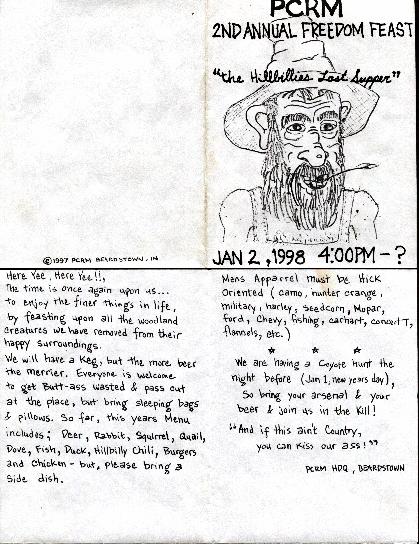 PCRM
2ND ANNUAL FREEDOM FEAST
"the Hillbillies Last Supper"
©1997 PCRM BEARDSTOWN, IN
JAN 2, 1998 4:00PM - ?
Here Yee, Here Yee!!,
The time is once again upon us...
to enjoy the finer things in life,
by feasting upon all the woodland
creatures we have removed from their
happy surroundings.
We will have a Keg, but the more beer
the merrier. Everyone is welcome
to get Butt-ass wasted & pass out
at the place, but bring sleeping bags
& pillows. So far, this years Menu
includes; Deer, Rabbit, Squirrel, Quail,
Dove, Fish, Duck, Hillbilly Chili, Burgers
and Chicken - but, please bring a
side dish.
Mens Apparrel must be Hick
Oriented (camo, hunter orange,
military, harley, seedcorn, Mopar,
Ford, Chevy, fishing, carhart, concert T,
flannels, etc.)
We are having a Coyote hunt the
night before (Jan 1, new years day),
So bring your arsenal & your
beer & join us in the Kill!
"And if this ain't Country,
you can kiss our ass!"
PCRM HDQ, BEARDSTOWN